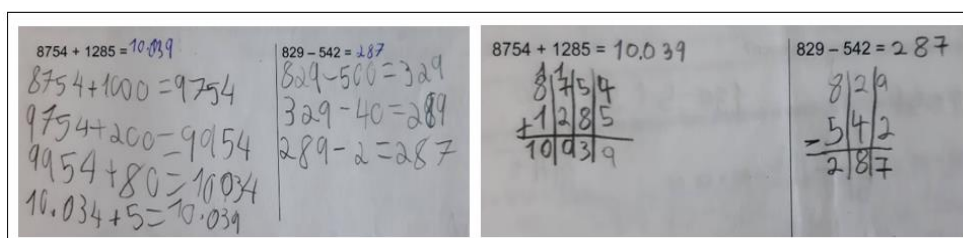 8754 + 1285 = 10.039
8754+1000=9754
9754+200=9954
9954+80=10034
10.034+5=10.039
829 – 542 = 287
829-500=329
329-40=289
289-2=287
8754 + 1285 = 10.039
1 1
8754
+1285
10039
829 – 542 = 287
829
-542
287